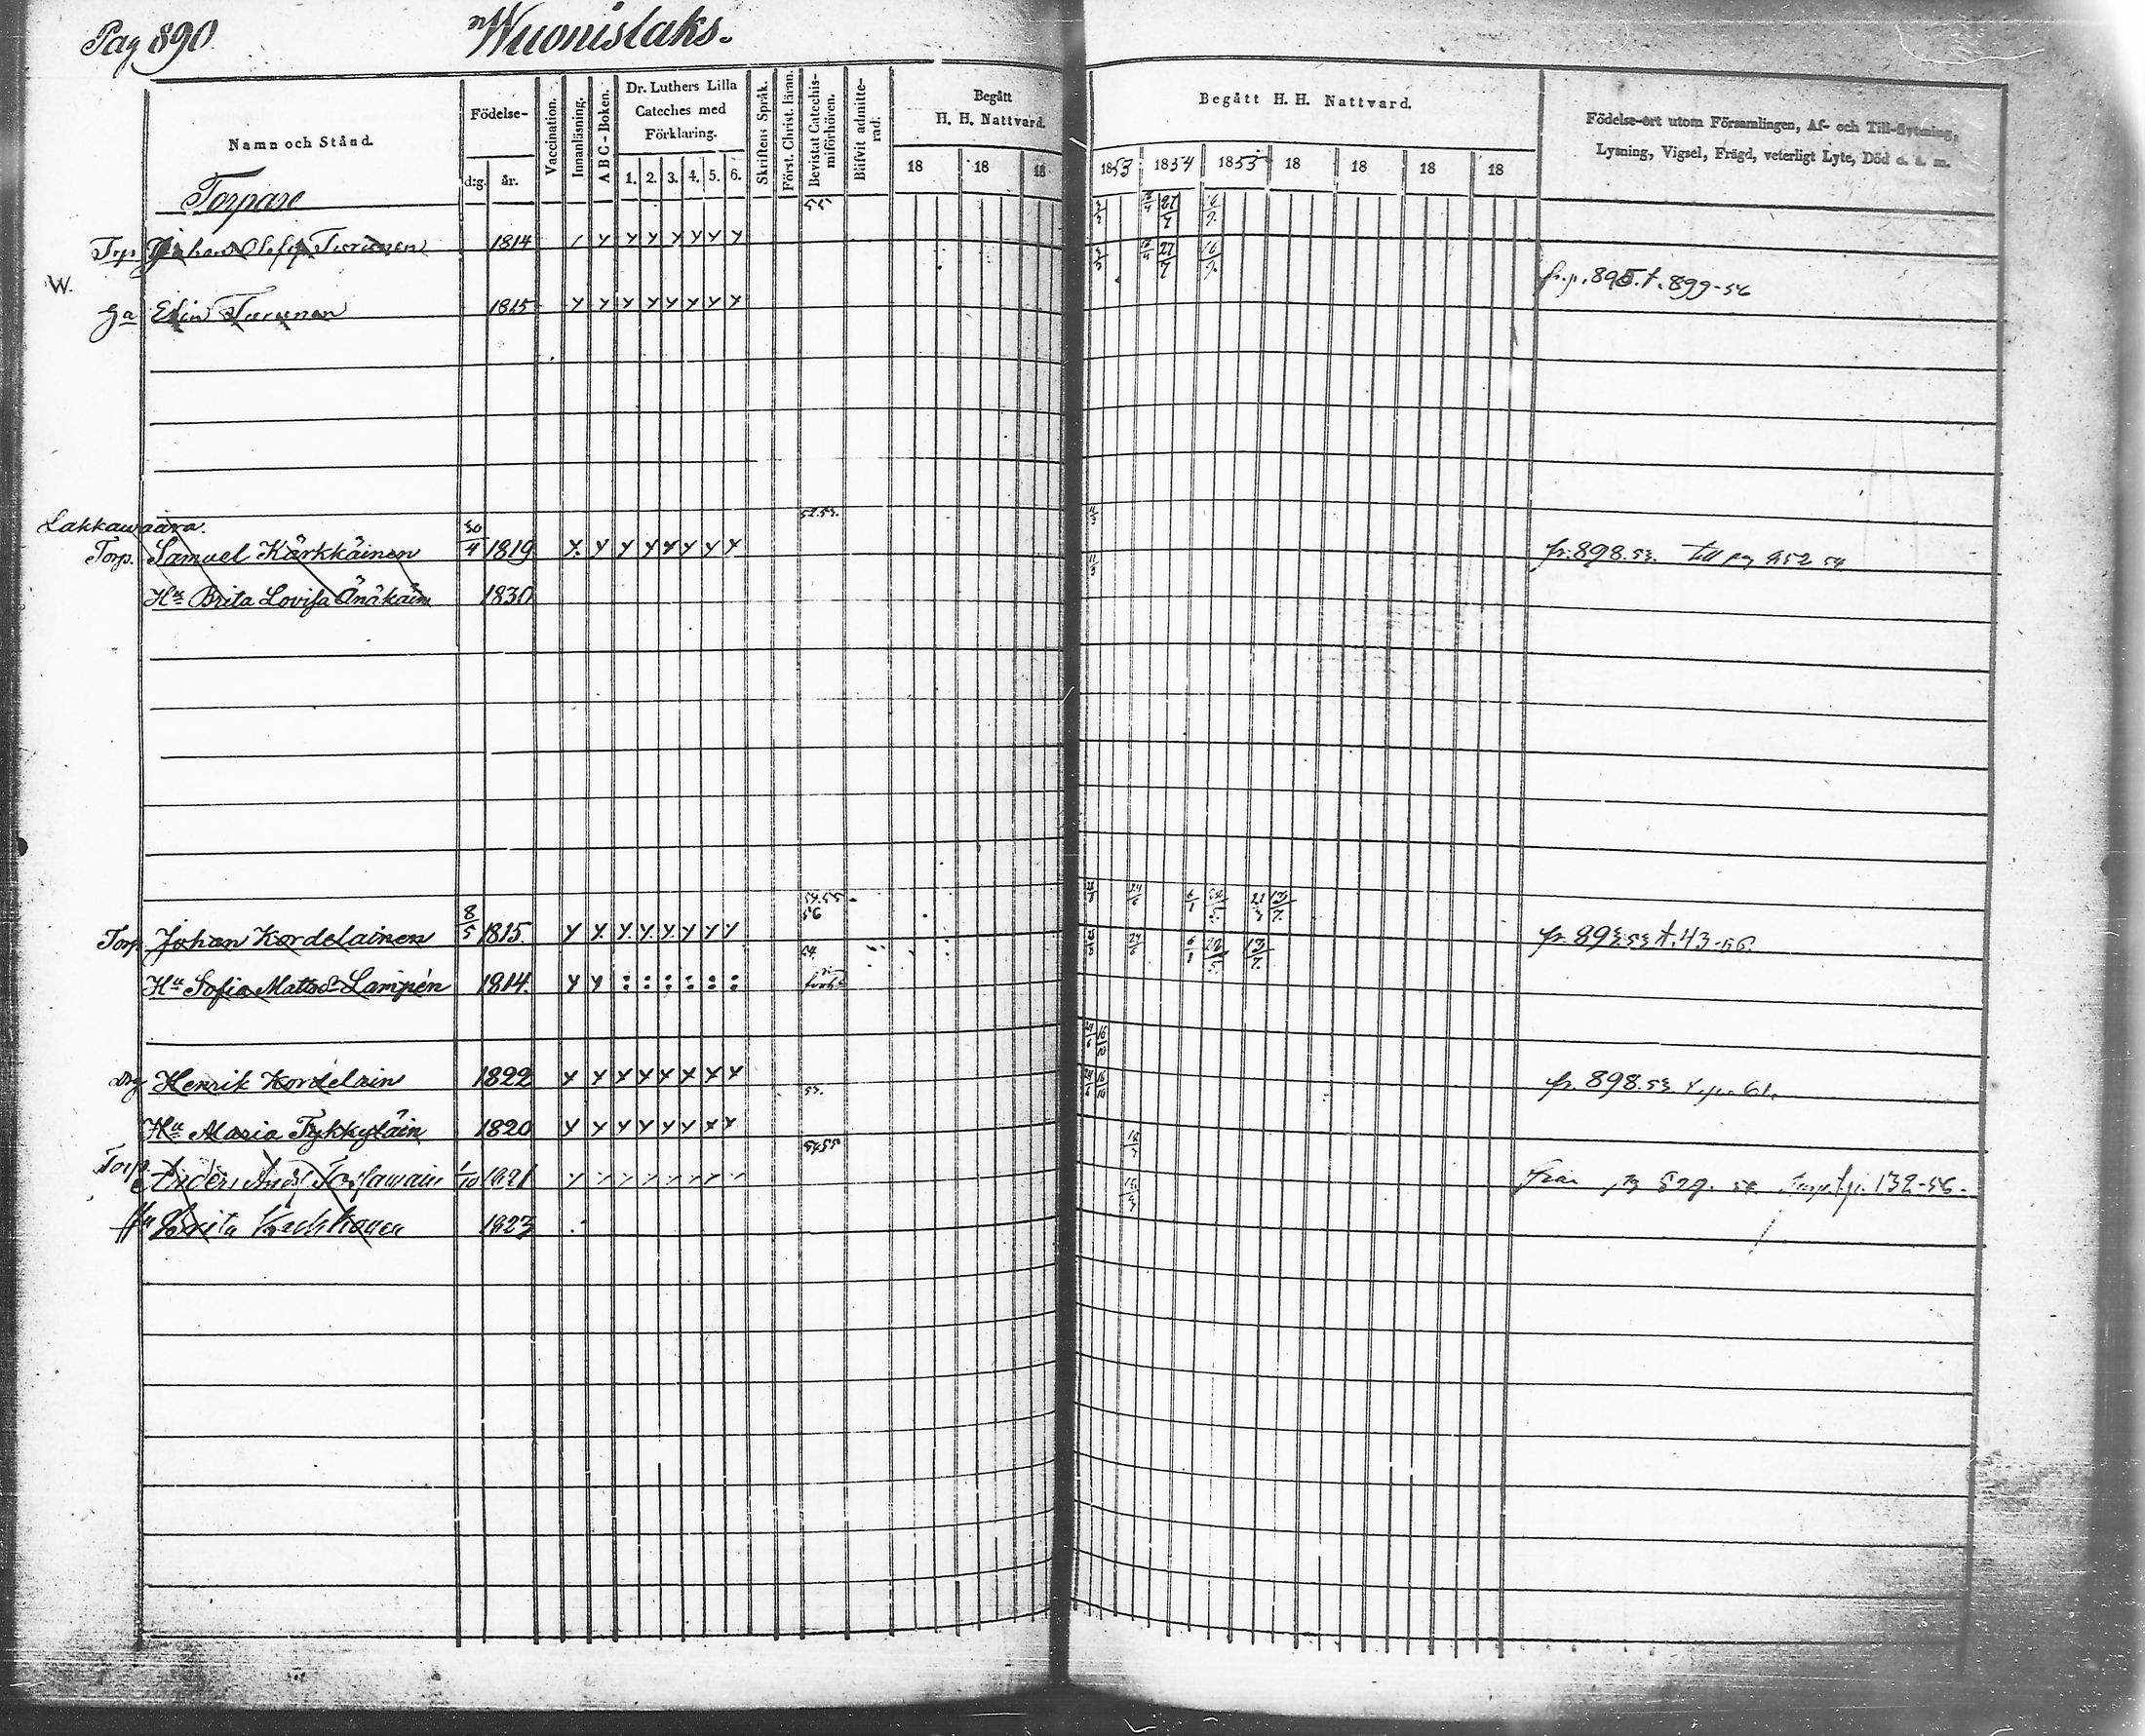 Pag 890. Wuonislaks.
Namn och Stånd.
Födelse-
d:g. år.
Vaccination.
Innanläsning.
A B C - Boken.
Dr. Luthers Lilla
Cateches med
Förklaring.
1. 2. 3. 4. 5. 6.
Skriftens Språk.
Först. Christ. läran.
Bevistat Catechis-
miförhören.
Blifvit admitte-
rad.
Begått
H. H. Nattvard.
18 18 18
Begått H. H. Nattvard.
1853 1854 1855 18 18 18 18
Födelse-ort utom Församlingen, Af- och Till-flyttning,
Lysning, Vigsel, Frägd, veterligt Lyte, Död o. s. m.
Torpare
55
Trp. Johan Olofss Turunen 1814
W.
Elin Turunen 1815
fr. p. 895. t. 899-56
Lakkawaara.
52.53.
Torp. Samuel Kärkkäinen 30/4 1819 fr. 898. 53. till pag 952 54
Hu Brita Lovisa Änäkäin 1830
54.55
56
Torp. Johan Kordelainen 8/5 1815. fr. 893 53 t. 43-56.
Hu Sofia Mattsdr Lampén 1814.
Henrik Kordelain 1822 fr. 898. 53
53.
Hu Maria Tykkyläin 1820
54 55
Torp. Anders And. 1/10 1821 Från pag 54 132-56.
Hu Brita 1823